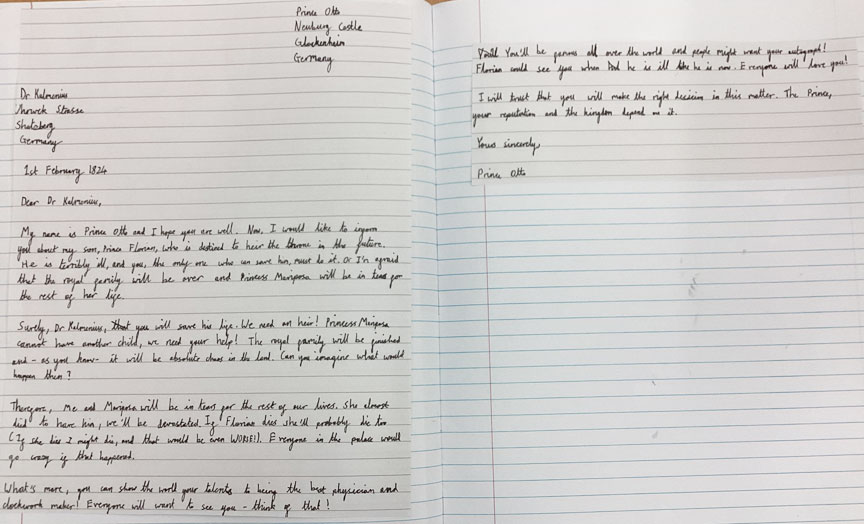 Prince Otto
Neuburg Castle
Glockenheim
Germany
Dr Kalmenius
Strasse
Shatzberg
Germany
1st February 1824
Dear Dr Kalmenius,
My name is Prince Otto and I hope you are well. Now, I would like to inform
you about my son, Prince Florian, who is destined to heir the throne in the future.
He is terribly ill, and you, the only one who can save him, must do it. Or I'm afraid
that the royal family will be over and Princess Mariposa will be in tears for
the rest of her life.
Surely, Dr Kalmenius, that you will save his life. We need an heir! Princess Mariposa
cannot have another child, we need your help! The royal family will be finished
and - as you know - it will be absolute chaos in the land. Can you imagine what would
happen then?
Therefore, me and Mariposa will be in tears for the rest of our lives. She almost
died to have him, we'll be devastated. If Florian dies she'll probably die too
(If she dies I might die, and that would be even WORSE!). Everyone in the palace would
go crazy if that happened.
What's more, you can show the world your talents to being the best physician and
clockwork maker! Everyone will want to see you - think of that!
You'll be famous all over the world and people might want your autograph!
Florian could see you when he is ill like he is now. Everyone will love you!
I will trust that you will make the right decision in this matter. The Prince,
your reputation and the kingdom depend on it.
Yours sincerely,
Prince Otto